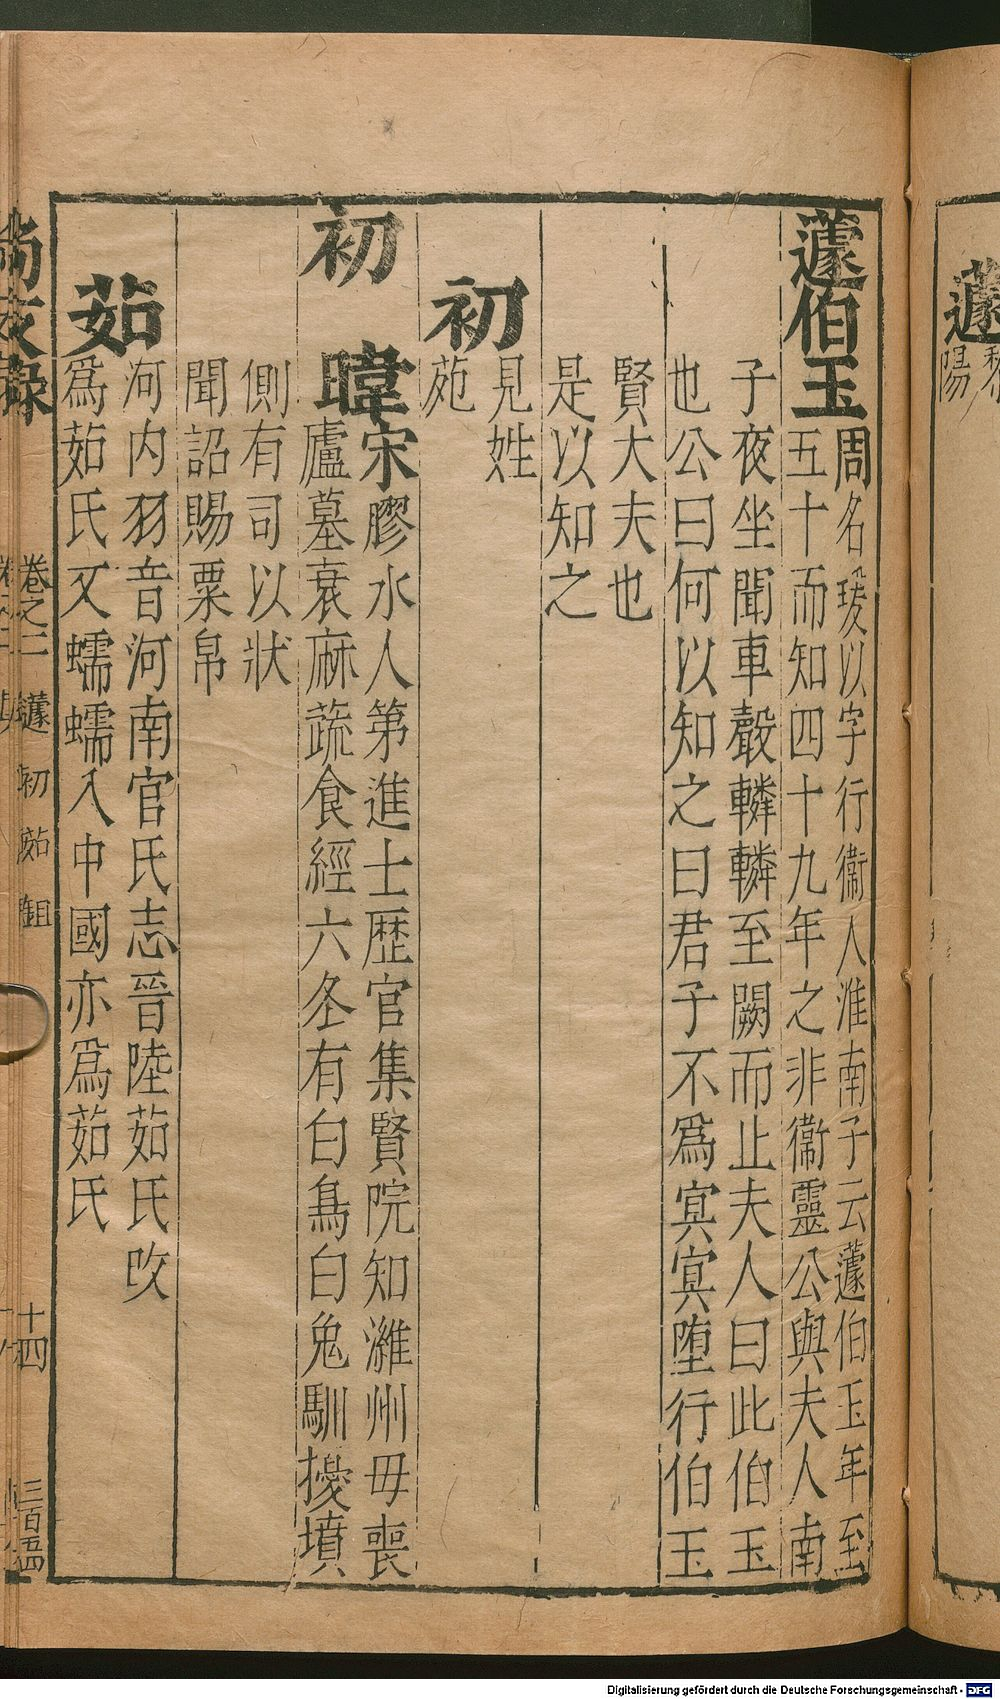 蘧
黎
陽
蘧伯玉
周名瑗以字行衞人淮南子云蘧伯玉年至
五十而知四十九年之非衞靈公與夫人南
子夜坐聞車聲轔轔至闕而止夫人曰此伯玉
也公曰何以知之曰君子不爲㝠㝠墮行伯玉
賢大夫也
是以知之
初
見姓
苑
初暐
宋膠水人第進士歴官集賢院知濰州毋喪
廬墓衰麻蔬食經六冬有白烏白兔馴擾墳
側有司以狀
聞詔賜粟帛
茹
河内羽音河南官氏志晉陸茹氏改
爲茹氏又蠕蠕入中國亦爲茹氏
尚友録
卷之二
蘧 初 茹 鉏
十四
三百五四
Digitalisierung gefördert durch die Deutsche Forschungsgemeinschaft - DFG